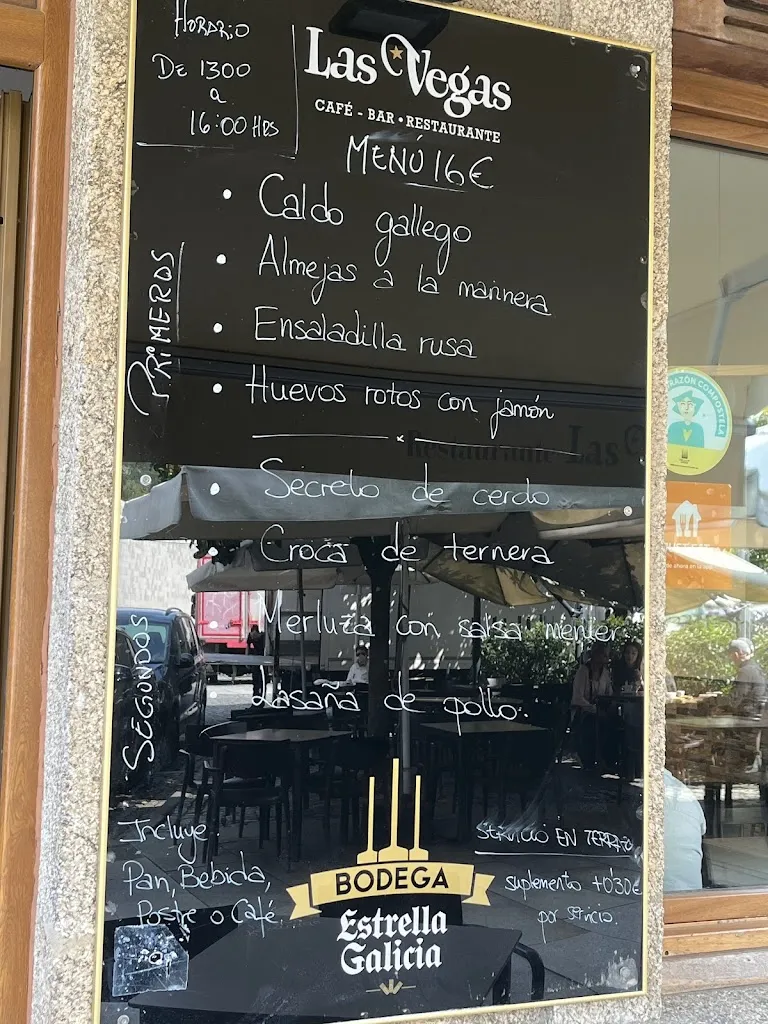 HORARIO
DE 1300
a
16:00 HRS
Las Vegas
CAFÉ - BAR • RESTAURANTE
MENÚ 16€
PRIMEROS
• Caldo gallego
• Almejas a la marinera
• Ensaladilla rusa
• Huevos rotos con jamón
SEGUNDOS
• Secreto de cerdo
• Croca de ternera
• Merluza con salsa menier
• Lasaña de pollo.
Incluye:
Pan, Bebida,
Postre o Café
BODEGA
Estrella
Galicia
SERVICIO EN TERRAZA
suplemento +0'30€
por servicio.
Restaurante Las
RAZÓN COMPOSTELA